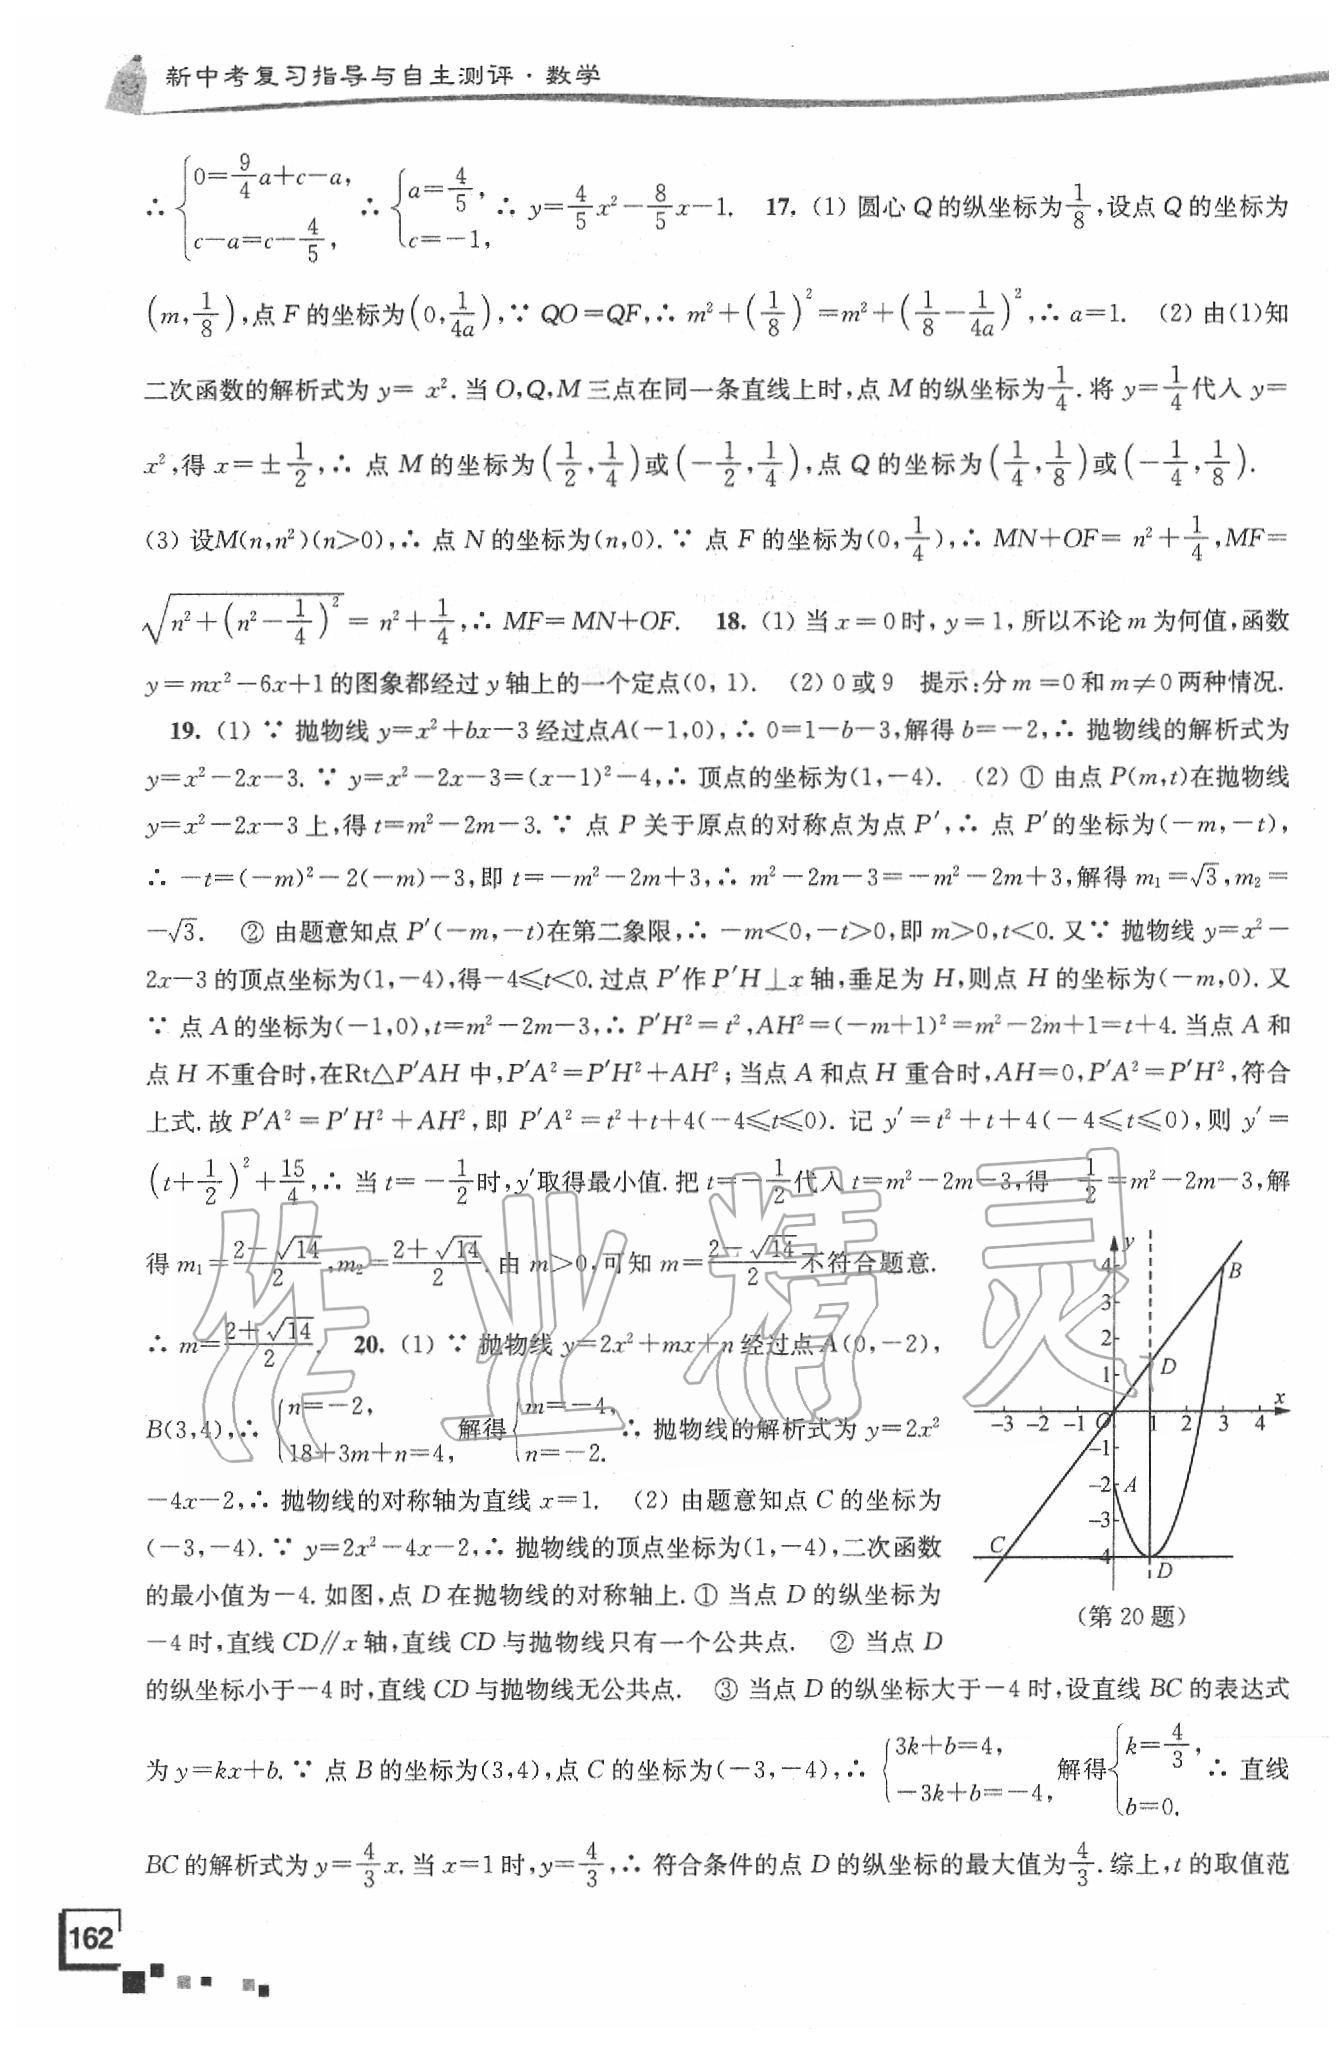 新中考复习指导与自主测评·数学
∴ {0=9/4a+c-a, c-a=c-4/5, ∴ {a=4/5, c=-1, ∴ y=4/5x²-8/5x-1. 17. (1) 圆心 Q 的纵坐标为1/8,设点 Q 的坐标为
(m,1/8),点 F 的坐标为(0,1/4a),∵ QO=QF,∴ m²+(1/8)²=m²+(1/8-1/4a)²,∴ a=1. (2) 由(1)知
二次函数的解析式为 y= x². 当 O,Q,M 三点在同一条直线上时,点 M 的纵坐标为1/4. 将 y=1/4代入 y=
x²,得 x=±1/2,∴ 点 M 的坐标为(1/2,1/4)或(-1/2,1/4),点 Q 的坐标为(1/4,1/8)或(-1/4,1/8).
(3) 设M(n,n²)(n>0),∴ 点 N 的坐标为(n,0). ∵ 点 F 的坐标为(0,1/4),∴ MN+OF= n²+1/4,MF=
√(n²+(n²-1/4)²) = n²+1/4,∴ MF=MN+OF. 18. (1) 当 x=0时, y=1, 所以不论 m 为何值,函数
y=mx²-6x+1 的图象都经过 y 轴上的一个定点(0, 1). (2) 0 或 9 提示:分 m=0 和 m≠0 两种情况.
19. (1) ∵ 抛物线 y=x²+bx-3 经过点A(-1,0),∴ 0=1-b-3,解得 b=-2,∴ 抛物线的解析式为
y=x²-2x-3. ∵ y=x²-2x-3=(x-1)²-4,∴ 顶点的坐标为(1,-4). (2) ① 由点 P(m,t)在抛物线
y=x²-2x-3 上,得 t=m²-2m-3. ∵ 点 P 关于原点的对称点为点 P′,∴ 点 P′的坐标为(-m,-t),
∴ -t=(-m)²-2(-m)-3,即 t=-m²-2m+3,∴ m²-2m-3=-m²-2m+3,解得 m₁=√3,m₂=
-√3. ② 由题意知点 P′(-m,-t)在第二象限,∴ -m<0,-t>0,即 m>0,t<0. 又∵ 抛物线 y=x²-
2x-3 的顶点坐标为(1,-4),得-4≤t<0. 过点 P′作 P′H⊥x 轴,垂足为 H,则点 H 的坐标为(-m,0). 又
∵ 点 A的坐标为(-1,0),t=m²-2m-3,∴ P′H²=t²,AH²=(-m+1)²=m²-2m+1=t+4. 当点 A 和
点 H 不重合时,在Rt△P′AH 中,P′A²=P′H²+AH²;当点 A 和点 H 重合时,AH=0,P′A²=P′H²,符合
上式. 故 P′A²=P′H²+AH²,即 P′A²=t²+t+4(-4≤t≤0). 记 y′=t²+t+4(-4≤t≤0),则 y′=
(t+1/2)²+15/4,∴ 当 t=-1/2时,y′取得最小值. 把 t=-1/2代入 t=m²-2m-3,得-1/2=m²-2m-3,解
得 m₁=(2-√14)/2,m₂=(2+√14)/2. 由 m>0,可知 m=(2-√14)/2不符合题意.
∴ m=(2+√14)/2. 20. (1) ∵ 抛物线 y=2x²+mx+n 经过点 A(0,-2),
B(3,4),∴ {n=-2, 18+3m+n=4, 解得{m=-4, n=-2. ∴ 抛物线的解析式为 y=2x²
-4x-2,∴ 抛物线的对称轴为直线 x=1. (2) 由题意知点 C 的坐标为
(-3,-4). ∵ y=2x²-4x-2,∴ 抛物线的顶点坐标为(1,-4),二次函数
的最小值为-4. 如图,点 D 在抛物线的对称轴上. ① 当点 D 的纵坐标为
-4 时,直线 CD∥x 轴,直线 CD 与抛物线只有一个公共点. ② 当点 D
的纵坐标小于-4 时,直线 CD 与抛物线无公共点. ③ 当点 D 的纵坐标大于-4 时,设直线 BC 的表达式
为 y=kx+b. ∵ 点 B 的坐标为(3,4),点 C 的坐标为(-3,-4),∴ {3k+b=4, -3k+b=-4, 解得{k=4/3, b=0. ∴ 直线
BC 的解析式为 y=4/3x. 当 x=1 时,y=4/3,∴ 符合条件的点 D 的纵坐标的最大值为4/3. 综上,t 的取值范
y
4
B
3
2
1
D
x
-3 -2 -1 O 1 2 3 4
-1
-2 A
-3
C
-4
D
(第 20 题)
作业精灵
162